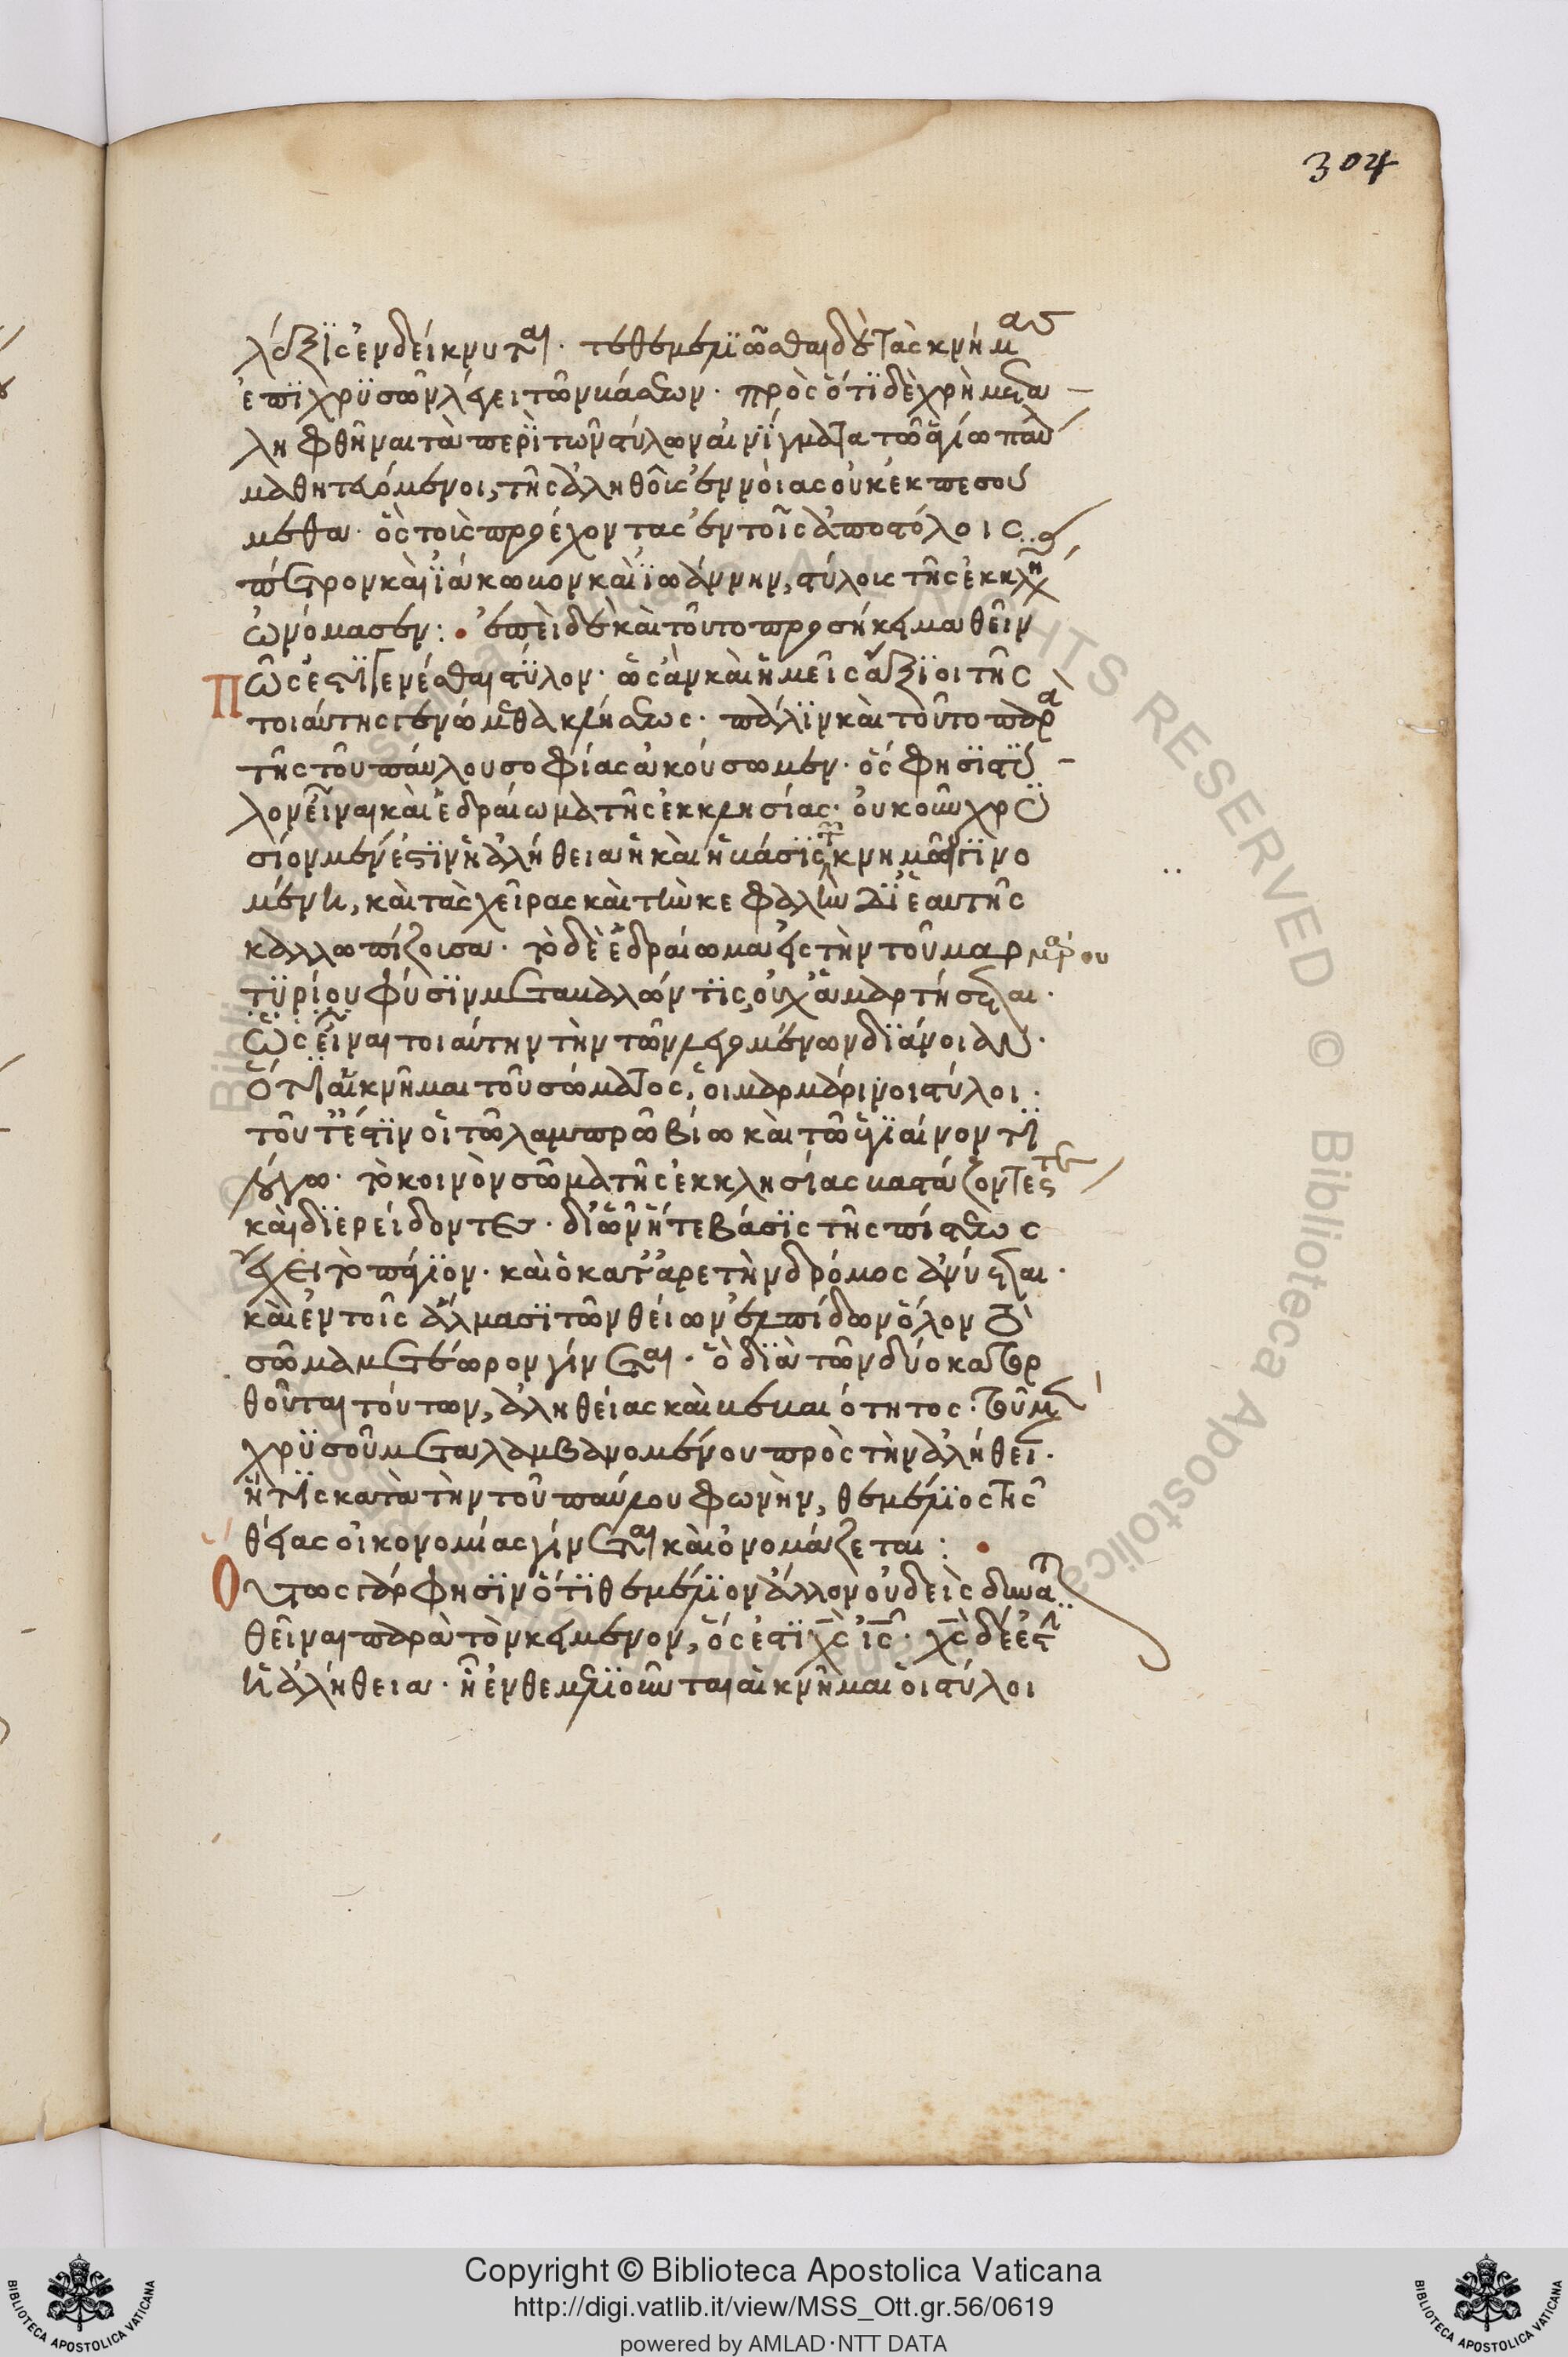 304
λέξις ἐνδείκνυται. τεθεμελιῶσθαι δὲ τὰς κνήμας
ἐπὶ χρυσῶν λέγει τῶν βάσεων. πρὸς ὅτι δὲ χρὴ μετα
ληφθῆναι τὰ περὶ τῶν στύλων αἰνίγματα τῷ ἁγίῳ παύλῳ
μαθητευόμενοι, τῆς ἀληθοῦς ἐννοίας οὐκ ἐκπεσού
μεθα. ὃς τοὺς προέχοντας ἐν τοῖς ἀποστόλοις
πέτρον καὶ ἰάκωβον καὶ ἰωάννην, στύλους τῆς ἐκκλη
ὠνόμασεν: ἐπεὶ δὲ καὶ τοῦτο προσήκει μαθεῖν
Πῶς ἐστι γενέσθαι στύλον. ὡς ἂν καὶ ἡμεῖς ἄξιοι τῆς
τοιαύτης γενώμεθα κλήσεως. πάλιν καὶ τοῦτο παρὰ
τῆς τοῦ παύλου σοφίας ἀκούσωμεν. ὅς φησι στύ
λον εἶναι καὶ ἑδραίωμα τῆς ἐκκλησίας. οὐκοῦν χρυ
σίον μέν ἐστιν ἡ ἀλήθεια ἡ καὶ ἡ βάσις τῶν κνημῶν γινο
μένη, καὶ τὰς χεῖρας καὶ τὴν κεφαλὴν δι' ἑαυτῆς
καλλωπίζουσα. τὸ δὲ ἑδραίωμα εἰς τὴν τοῦ μαρμάρου
τυρίου φύσιν μεταβαλών τις οὐχ ἁμαρτήσεται.
ὡς εἶναι τοιαύτην τὴν τῶν λεγομένων διάνοιαν.
ὅτι αἱ κνῆμαι τοῦ σώματος, οἱ μαρμάρινοι στύλοι.
τοῦτ' ἔστιν οἱ τῷ λαμπρῷ βίῳ καὶ τῷ ὑγιαίνοντι
λόγῳ. τὸ κοινὸν σῶμα τῆς ἐκκλησίας βαστάζοντές τε
καὶ διερείδοντες. δι' ὧν ἥ τε βάσις τῆς πίστεως
ἔχει τὸ πάγιον. καὶ ὁ κατ' ἀρετὴν δρόμος ἀνύεται.
καὶ ἐν τοῖς ἅλμασι τῶν θείων ἐλπίδων ὅλον τὸ
σῶμα μετέωρον γίνεται. ὃ διὰ τῶν δύο κατορ
θοῦται τούτων, ἀληθείας καὶ βεβαιότητος. τοῦ μὲν
χρυσοῦ μεταλαμβανομένου πρὸς τὴν ἀλήθει.
ἥτις κατὰ τὴν τοῦ παύλου φωνὴν, θεμέλιος τῆς
θείας οἰκονομίας γίνεται καὶ ὀνομάζεται:
Οὕτως γάρ φησιν ὅτι θεμέλιον ἄλλον οὐδεὶς δύναται
θεῖναι παρὰ τὸν κείμενον, ὅς ἐστι χς ις. χς δέ ἐστιν
ἡ ἀλήθεια. ᾗ ἐνθεμελιοῦνται αἱ κνῆμαι οἱ στύλοι
Copyright © Biblioteca Apostolica Vaticana
http://digi.vatlib.it/view/MSS_Ott.gr.56/0619
powered by AMLAD·NTT DATA